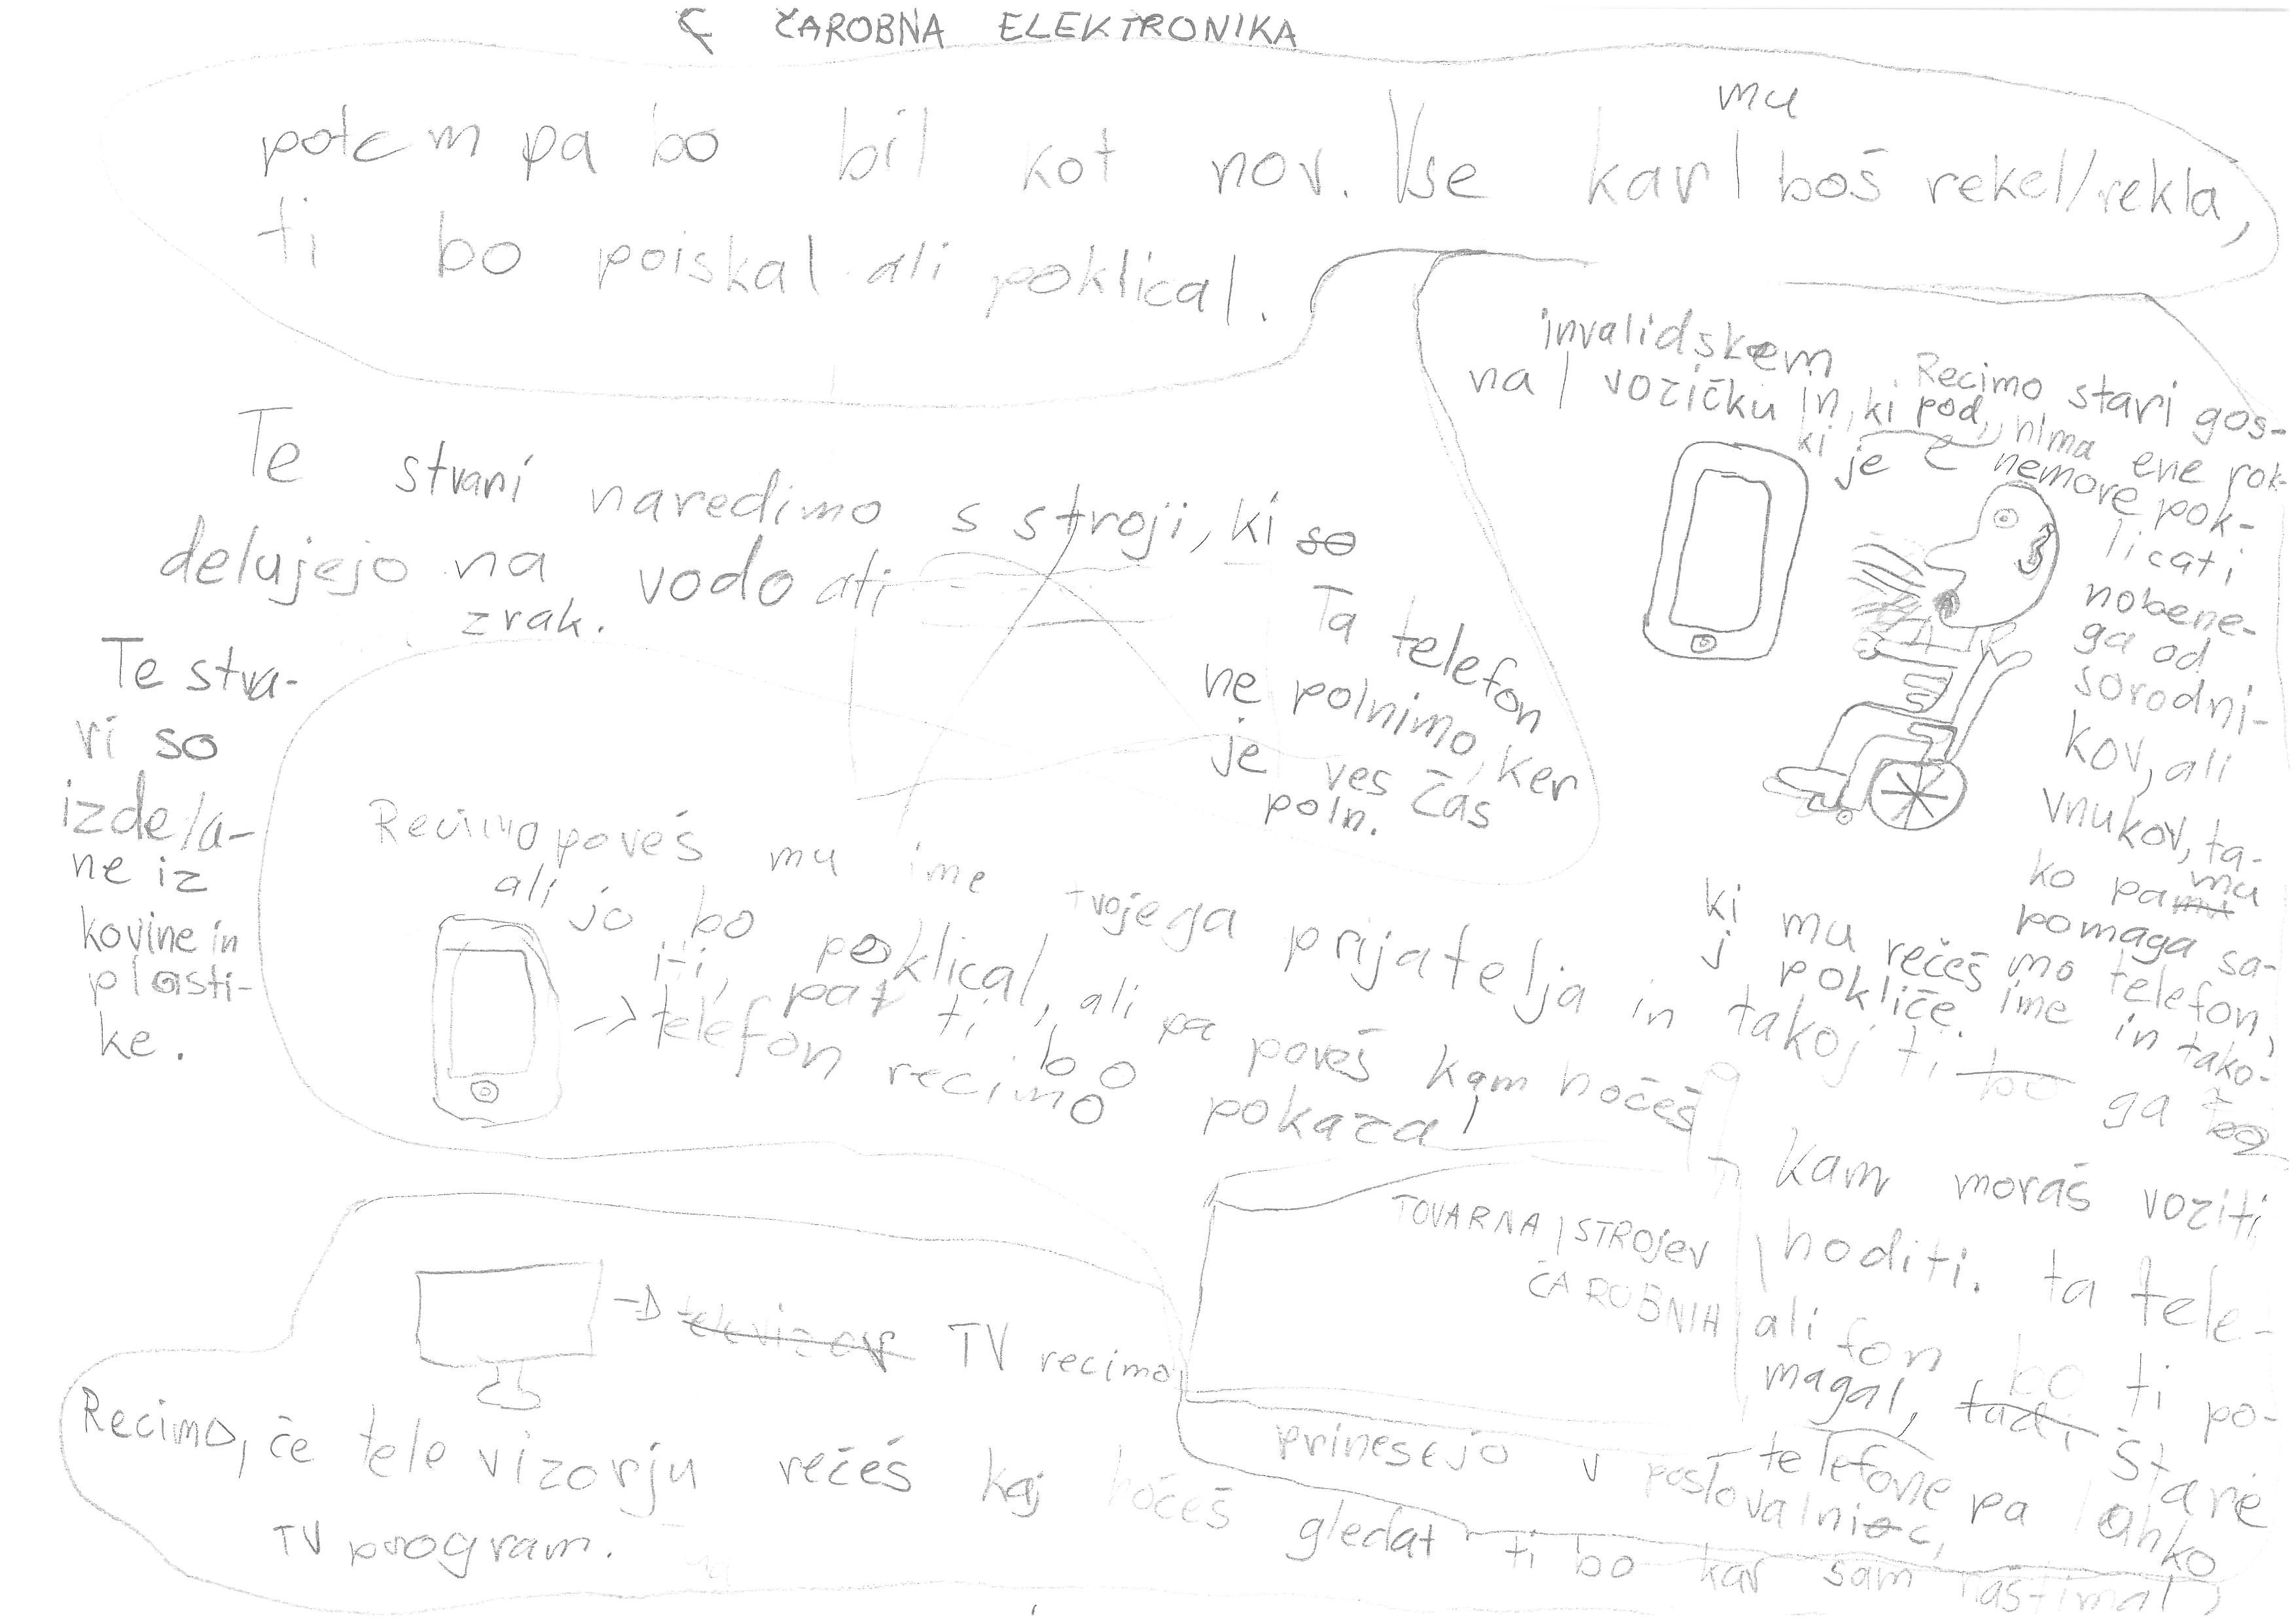 ČAROBNA ELEKTRONIKA
potem pa bo bil kot nov. Vse kar mu boš rekel/rekla,
ti bo poiskal ali poklical.
Te stvari naredimo s stroji, ki so
delujejo na vodo ali
zrak.
Te stva-
ri so
izdela-
ne iz
kovine in
plasti-
ke.
Ta telefon
ne polnimo, ker
je ves čas
poln.
Recimo stari gos-
pod, ki nima ene rok-
e in, ki je
na invalidskem vozičku
nemore pok-
licati
nobene-
ga od
sorodni-
kov, ali
vnukov, ta-
ko pa mu
pomaga sa-
mo telefon,
ki mu rečeš ime in tako-
j pokliče.
Recimo poveš mu ime tvojega prijatelja in takoj ti bo ga
ali jo bo poklical, ali pa poveš kam hočeš
iti, pa ti bo pokazal
-> telefon recimo
kam moraš voziti
ali hoditi. ta tele-
fon bo ti po-
magal, stare
telefone pa lahko
prinesejo v poslovalnic,
TOVARNA ČAROBNIH STROJEV
-> televizor TV recimo
Recimo, če tele vizorju rečeš kaj hočeš gledat ti bo kar sam naštimal
TV program.